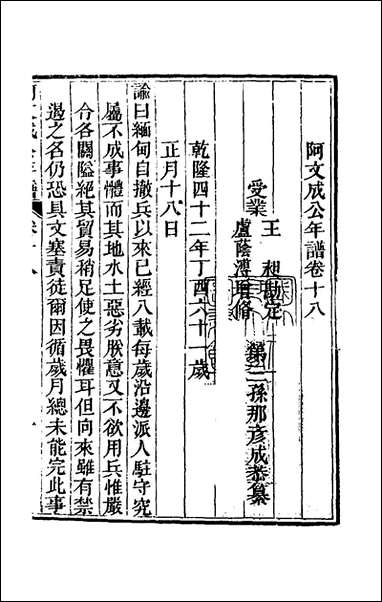 阿文成公年譜卷十八
第三孫那彥成恭纂
受業
王　昶勘定
盧蔭溥增修
乾隆四十二年丁酉六十一歲
正月十八日
諭曰緬甸自撤兵以來已經八載每歲沿邊派人駐守究
屬不成事體而其地水土惡劣朕意又不欲用兵惟嚴
令各關隘絕其貿易稍足使之畏懼耳但向來雖有禁
遏之名仍恐具文塞責徒爾因循歲月總未能完此事